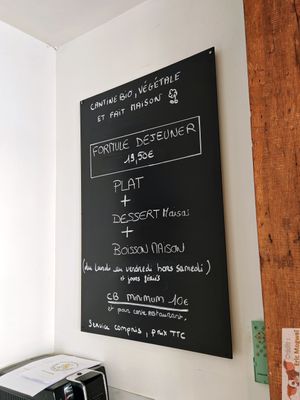 CANTINE BIO, VÉGÉTALE
ET FAIT MAISON
FORMULE DEJEUNER
19,50€
PLAT
+
DESSERT Maison
+
BOISSON MAISON
(du lundi au vendredi hors samedi)
et jours fériés
CB MINIMUM 10€
et pas carte restaurant.
Service compris, prix TTC